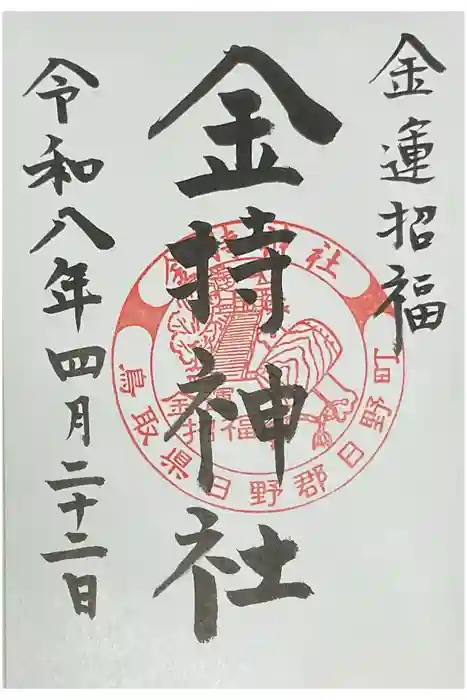 金運招福
金持神社
令和八年四月二十二日
金持神社
金運
招福
鳥取県日野郡日野町